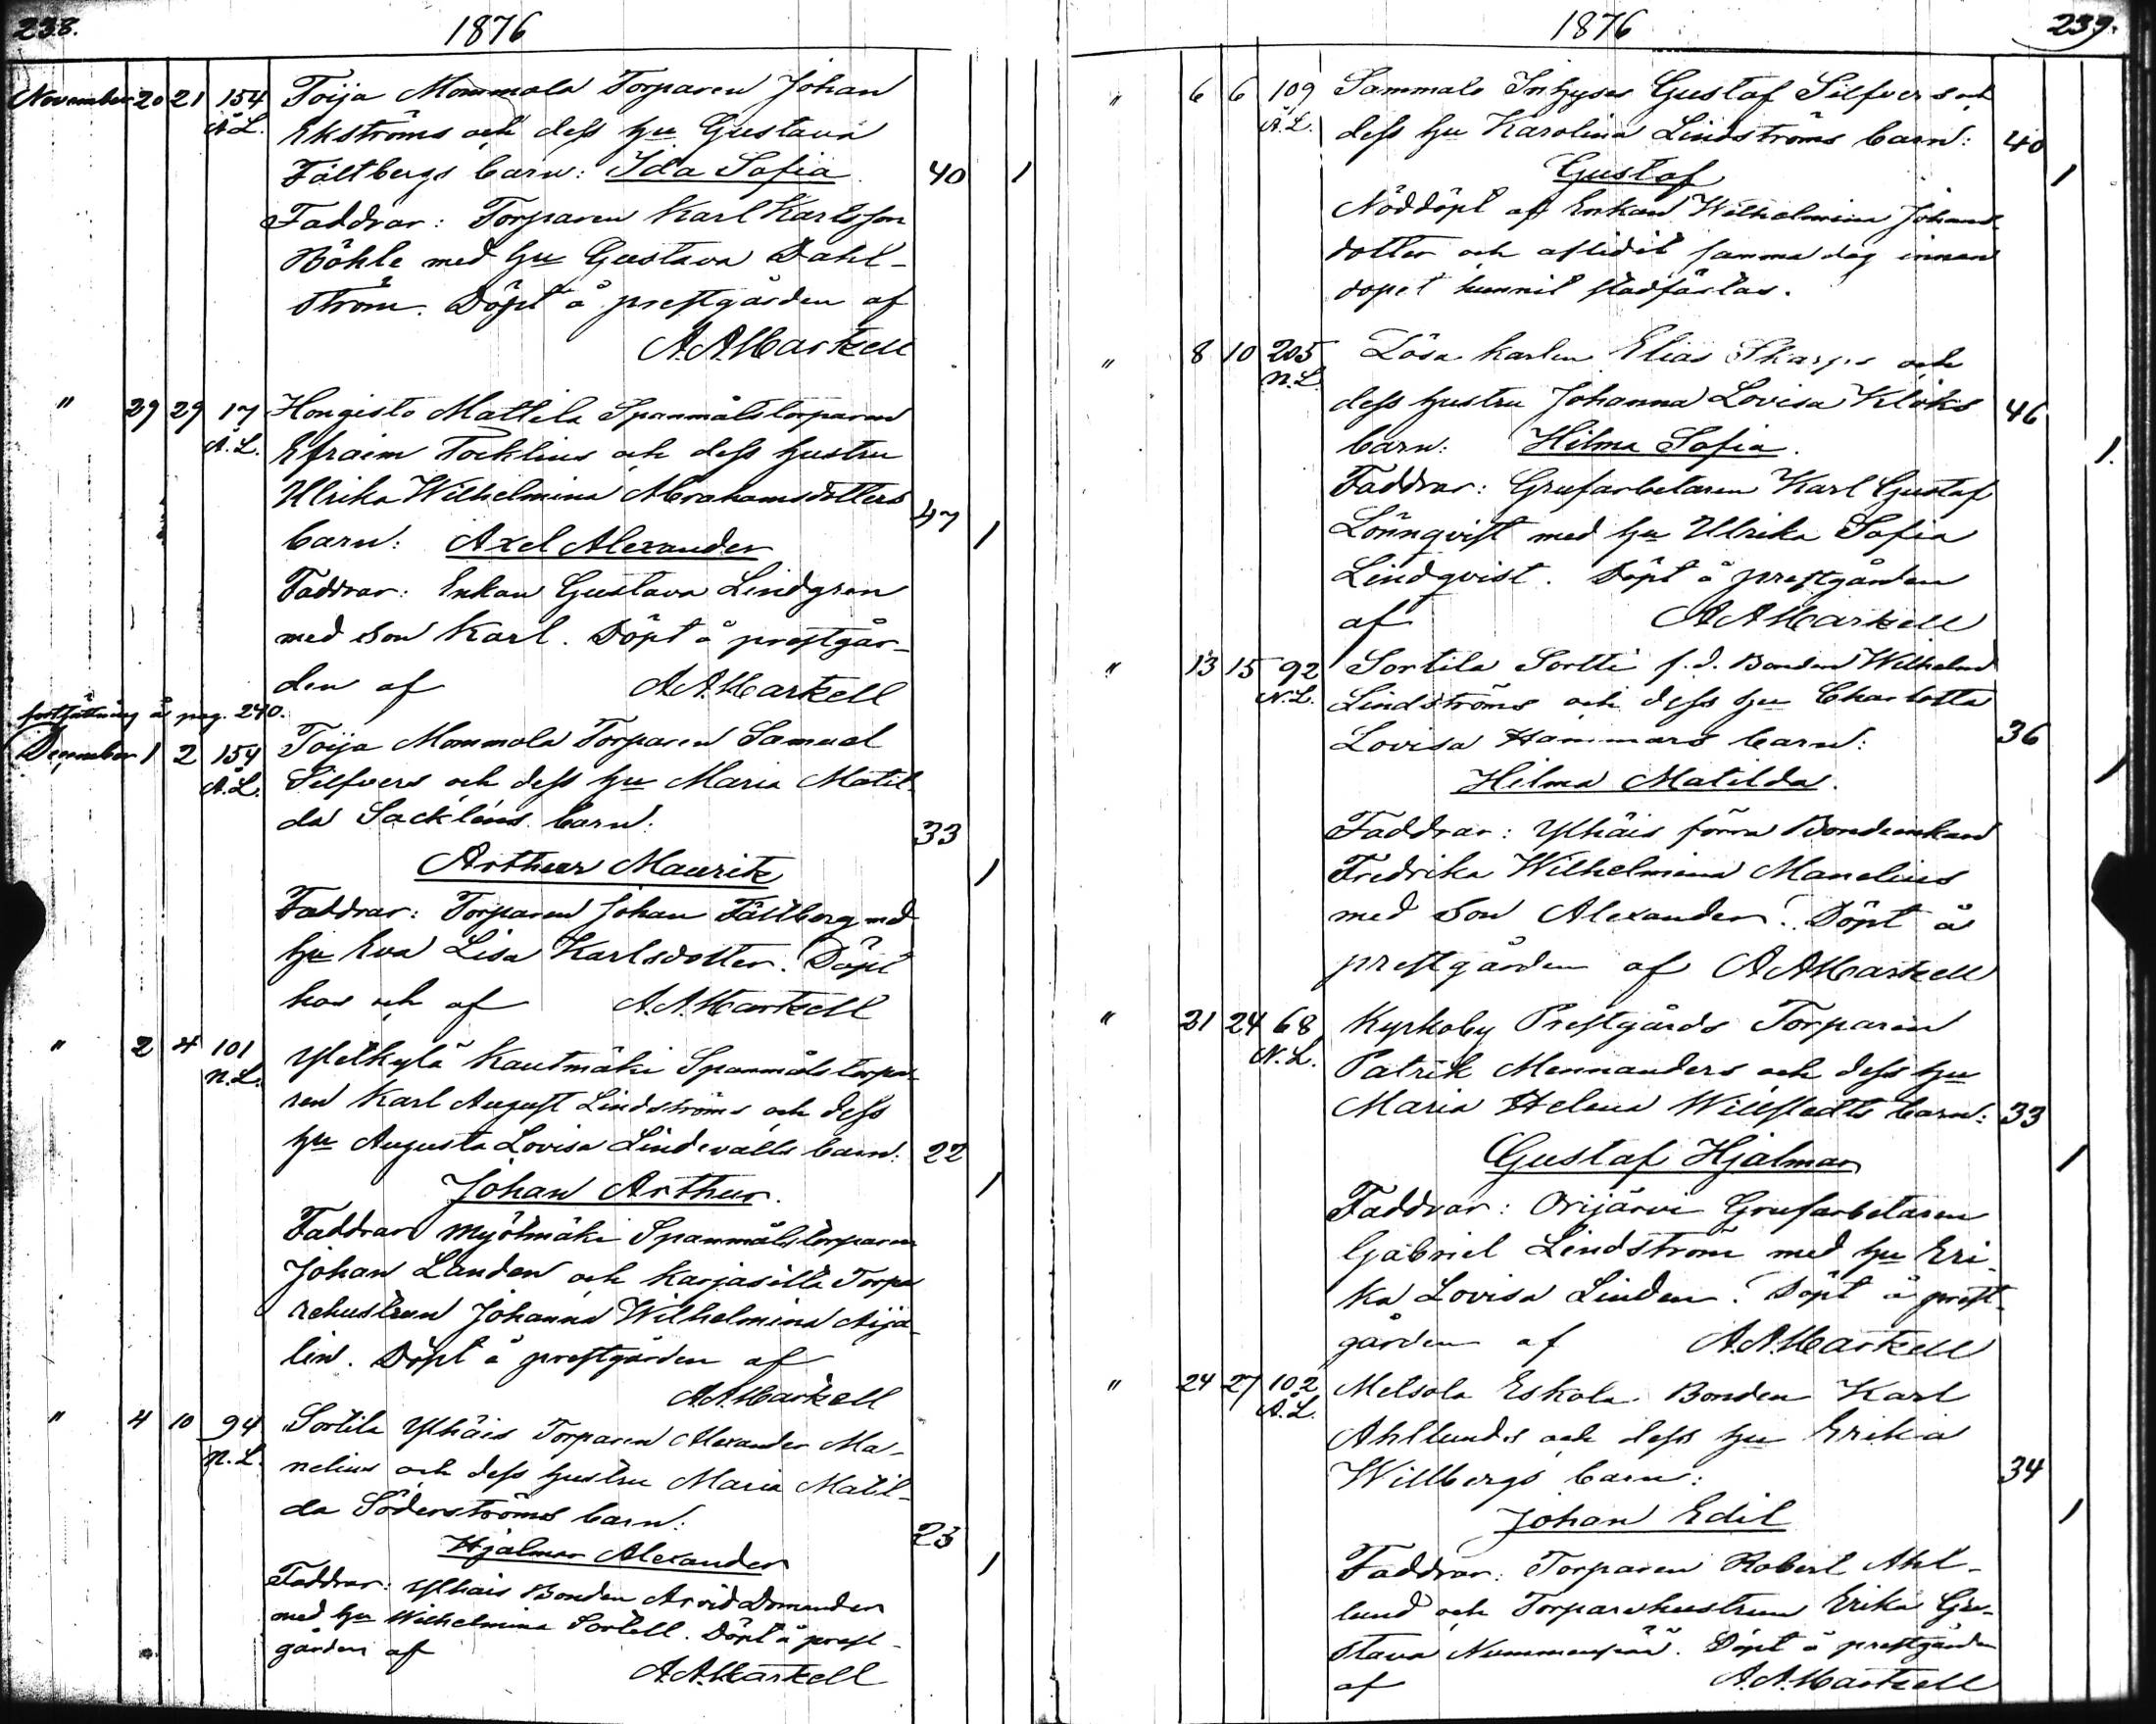 238.
1876
November 20 21 154 Toija Mommola Torparen Johan
Å.L. Ekströms och dess hu Gustava
Fältbergs barn: Ida Sofia. 40 1
Faddrar: Torparen Karl Karlsson
Böhle med hu Gustava Dahl-
ström. Döpt å prestgården af
A.A.Markell
" 29 29 17 Hongisto Mattila Spanmålstorparen
Å.L. Efraim Tocklins och dess hustru
Ulrika Wilhelmina Abrahamsdotters 47
barn: Axel Alexander 1
Faddrar: Enkan Gustava Lindgren
med son Karl. Döpt å prestgår-
den af A.A.Markell
fortsättning å pag. 240.
December 1 2 154 Toija Mommola Torparen Samuel
Å.L. Silfvers och dess hu Maria Matil-
da Sackléns barn: 33
Arthur Mauritz 1
Faddrar: Torparen Johan Fältberg med
hu Eva Lisa Karlsdotter. Döpt
hos och af A.A.Markell
" 2 4 101 Ylikylä Kautmäki Spanmålstorpa-
N.L. ren Karl August Lindströms och dess
hu Augusta Lovisa Lindevalls barn: 22
Johan Arthur. 1
Faddrar Myöhmäki Spanmålstorparen
Johan Landen och Karjasilta Torpa-
rehustrun Johanna Wilhelmina Aija-
lin. Döpt å prestgården af
A.A.Markell
" 4 10 94 Sortila Ylhäis Torparen Alexander Ma-
N.L. nelius och dess hustru Maria Matil-
da Söderströms barn: 23
Hjalmar Alexander 1
Faddrar: Ylhäis Bonden Arvid Domander
med hu Wilhelmina Sortell. Döpt å prest-
gården af
A.A.Markell
1876
239.
" 6 6 109 Sammalo Inhyses Gustaf Silfvers och
Å.L. dess hu Karolina Lindströms barn: 40
Gustaf 1
Nöddöpt af Enkan Wilhelmina Johans-
dotter och aflidit samma dag innan
dopet hunnit stadfästas.
" 8 10 205 Lösa karlen Elias Skarps och
N.L. dess hustru Johanna Lovisa Kloks 46
barn: Hilma Sofia. 1.
Faddrar: Grufarbetaren Karl Gustaf
Lönnqvist med hu Ulrika Sofia
Lindqvist. Döpt å prestgården
af A A Markell
" 13 15 92 Sortila Sortti f.d. Bonden Wilhelm
N.L. Lindströms och dess hu Charlotta
Lovisa Hammars barn: 36
Hilma Matilda. 1
Faddrar: Ylhäis förra Bondeenkan
Fredrika Wilhelmina Manelius
med son Alexander. Döpt å
prestgården af A A Markell
" 21 24 68 Kyrkoby Prestgårds Torparen
N.L. Patrik Mennanders och dess hu
Maria Helena Willstedts barn: 33
Gustaf Hjalmar 1
Faddrar: Orijärvi Grufarbetaren
Gabriel Lindström med hu Eri-
ka Lovisa Linden. Döpt å prest-
gården af A.A.Markell
" 24 27 102 Melsola Eskola Bonden Karl
Å.L. Ahllunds och dess hu Erika
Willbergs barn: 34
Johan Edil 1
Faddrar: Torparen Robert Ahl-
lund och Torparehustrun Erika Gu-
stava Nummenpää. Döpt å prestgården
af A.A.Markell